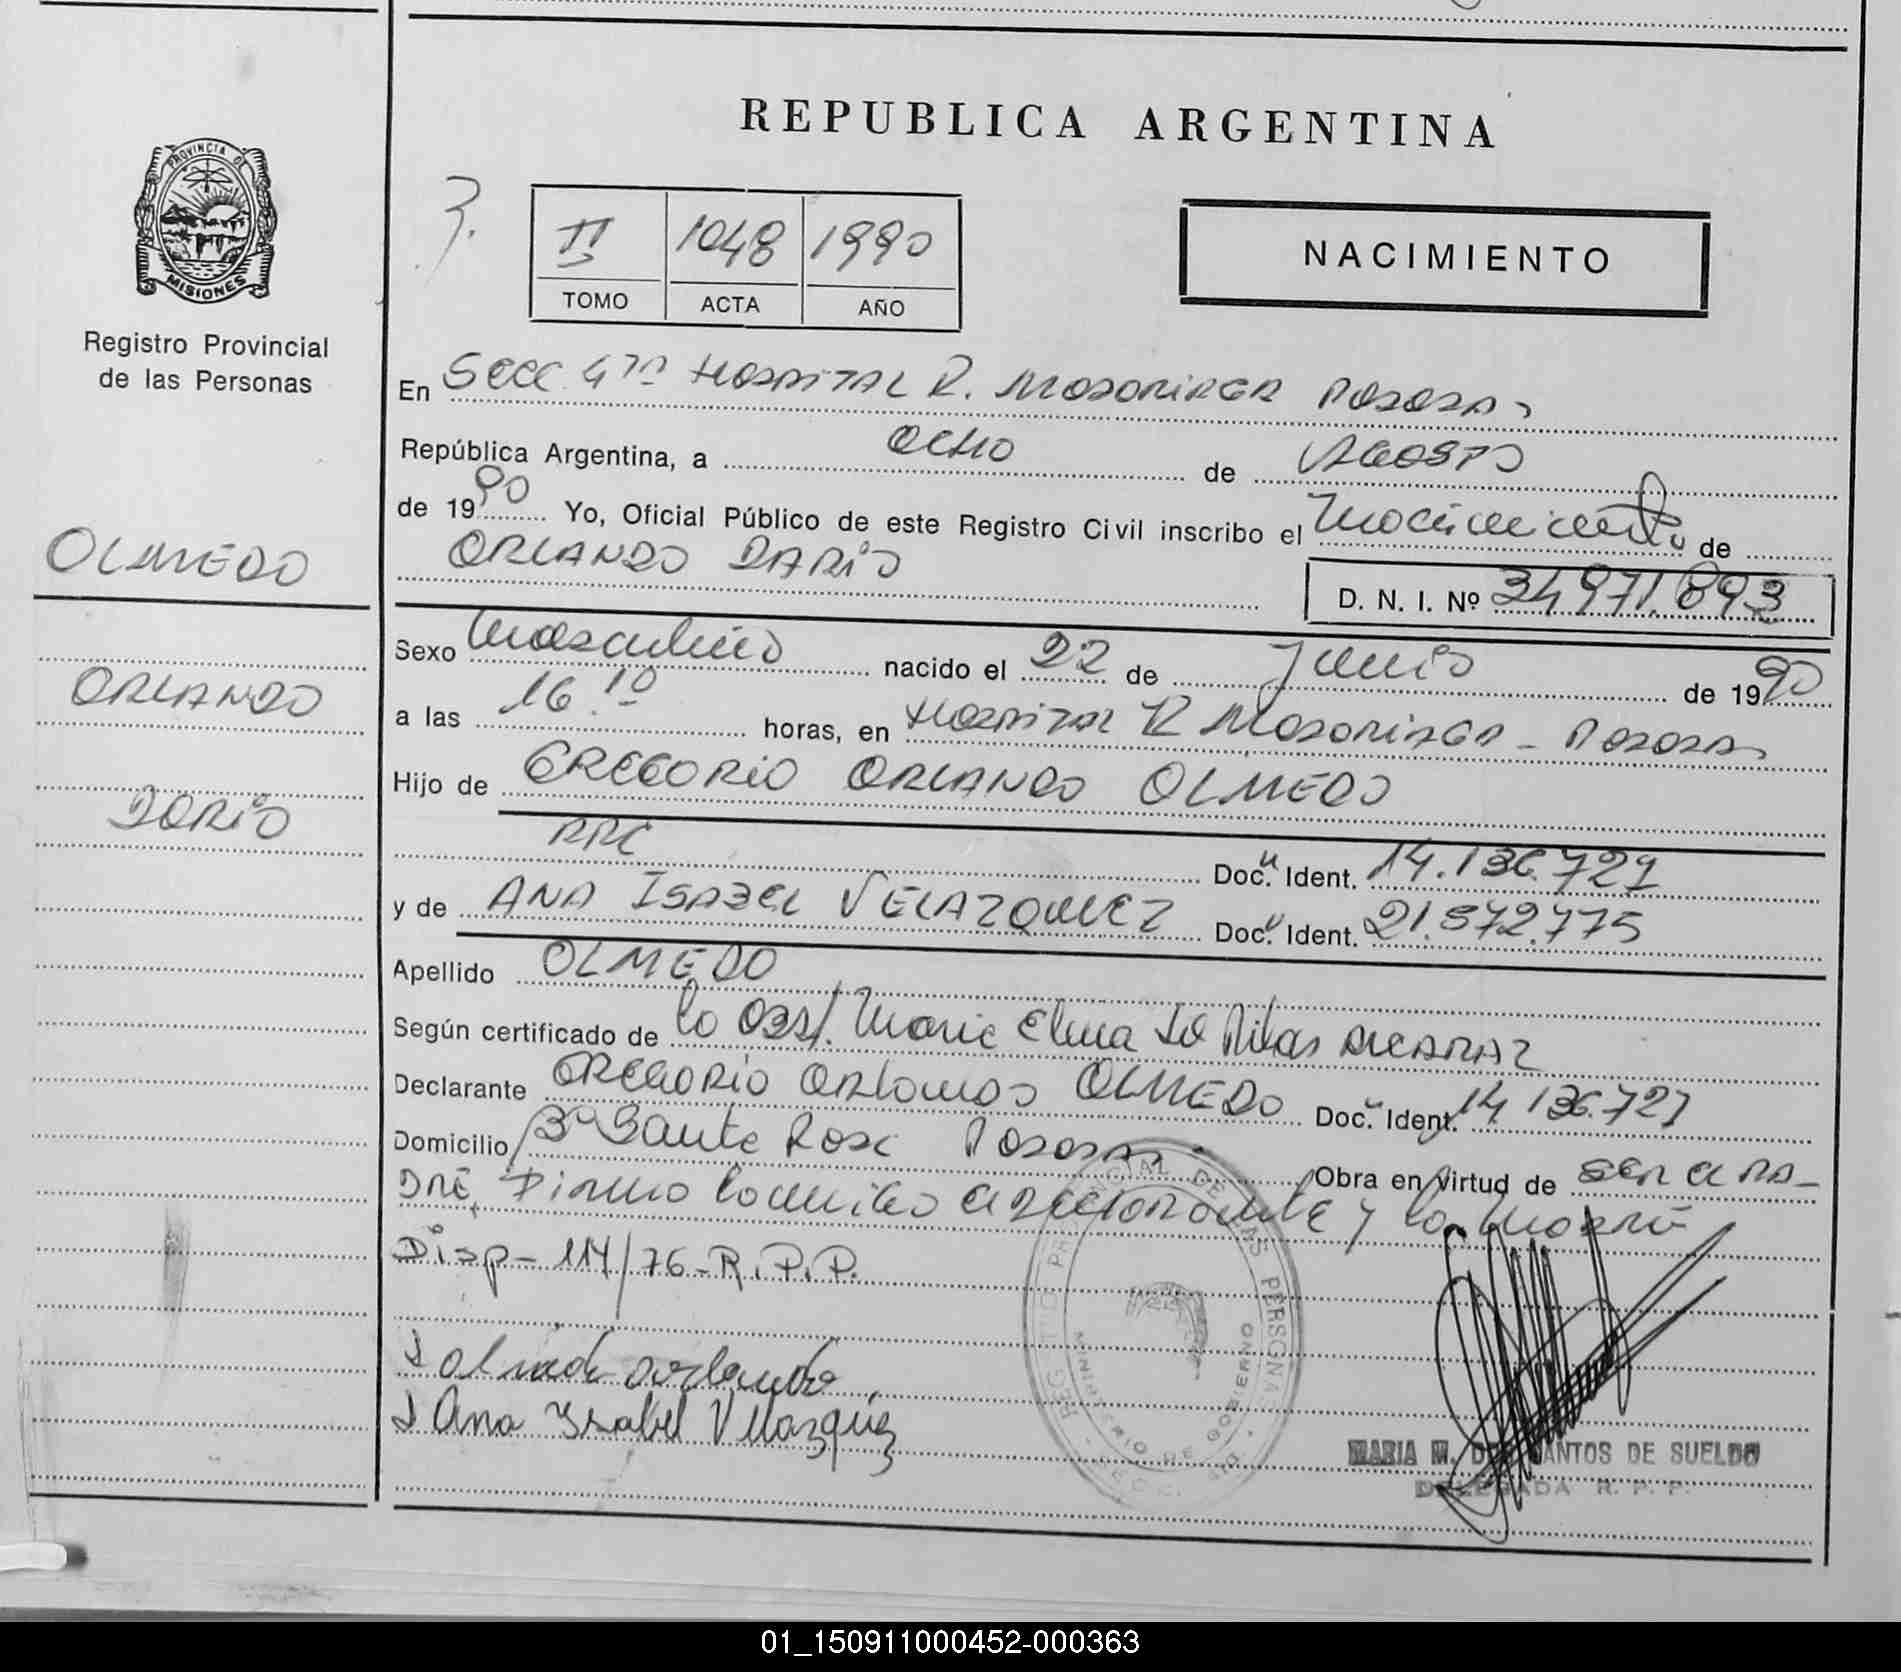 REPUBLICA ARGENTINA
PROVINCIA DE
MISIONES
Registro Provincial
de las Personas
3.
II 1048 1990
TOMO ACTA AÑO
NACIMIENTO
En SECC 4TA HOSPITAL R. MADARIAGA POSADAS
República Argentina, a OCHO de AGOSTO
de 1990 Yo, Oficial Público de este Registro Civil inscribo el Nacimiento de
ORLANDO DARIO
D. N. I. Nº 34971.893
OLMEDO
ORLANDO
DARIO
Sexo Masculino nacido el 22 de Junio de 1990
a las 16.10 horas, en HOSPITAL R MADARIAGA - POSADAS
Hijo de GREGORIO ORLANDO OLMEDO
ARG Doc. Ident. 14.136.721
y de ANA ISABEL VELAZQUEZ Doc. Ident. 21.572.775
Apellido OLMEDO
Según certificado de la Obst. Maria Elena De Ribas
Declarante GREGORIO Orlando OLMEDO Doc. Ident. 14 136.721
Domicilio Bº Santa Rosa Posadas Obra en virtud de SER EL PA-
DRE, Firma la declarante y la Madre
Disp- 114/76-R.P.P.
Olmedo orlando
Ana Ysabel Velazquez
REG PROVINCIAL DE LAS PERSONAS
MINISTERIO DE GOBIERNO
MARIA M. DOS SANTOS DE SUELDO
DELEGADA R. P. P.
01_150911000452-000363